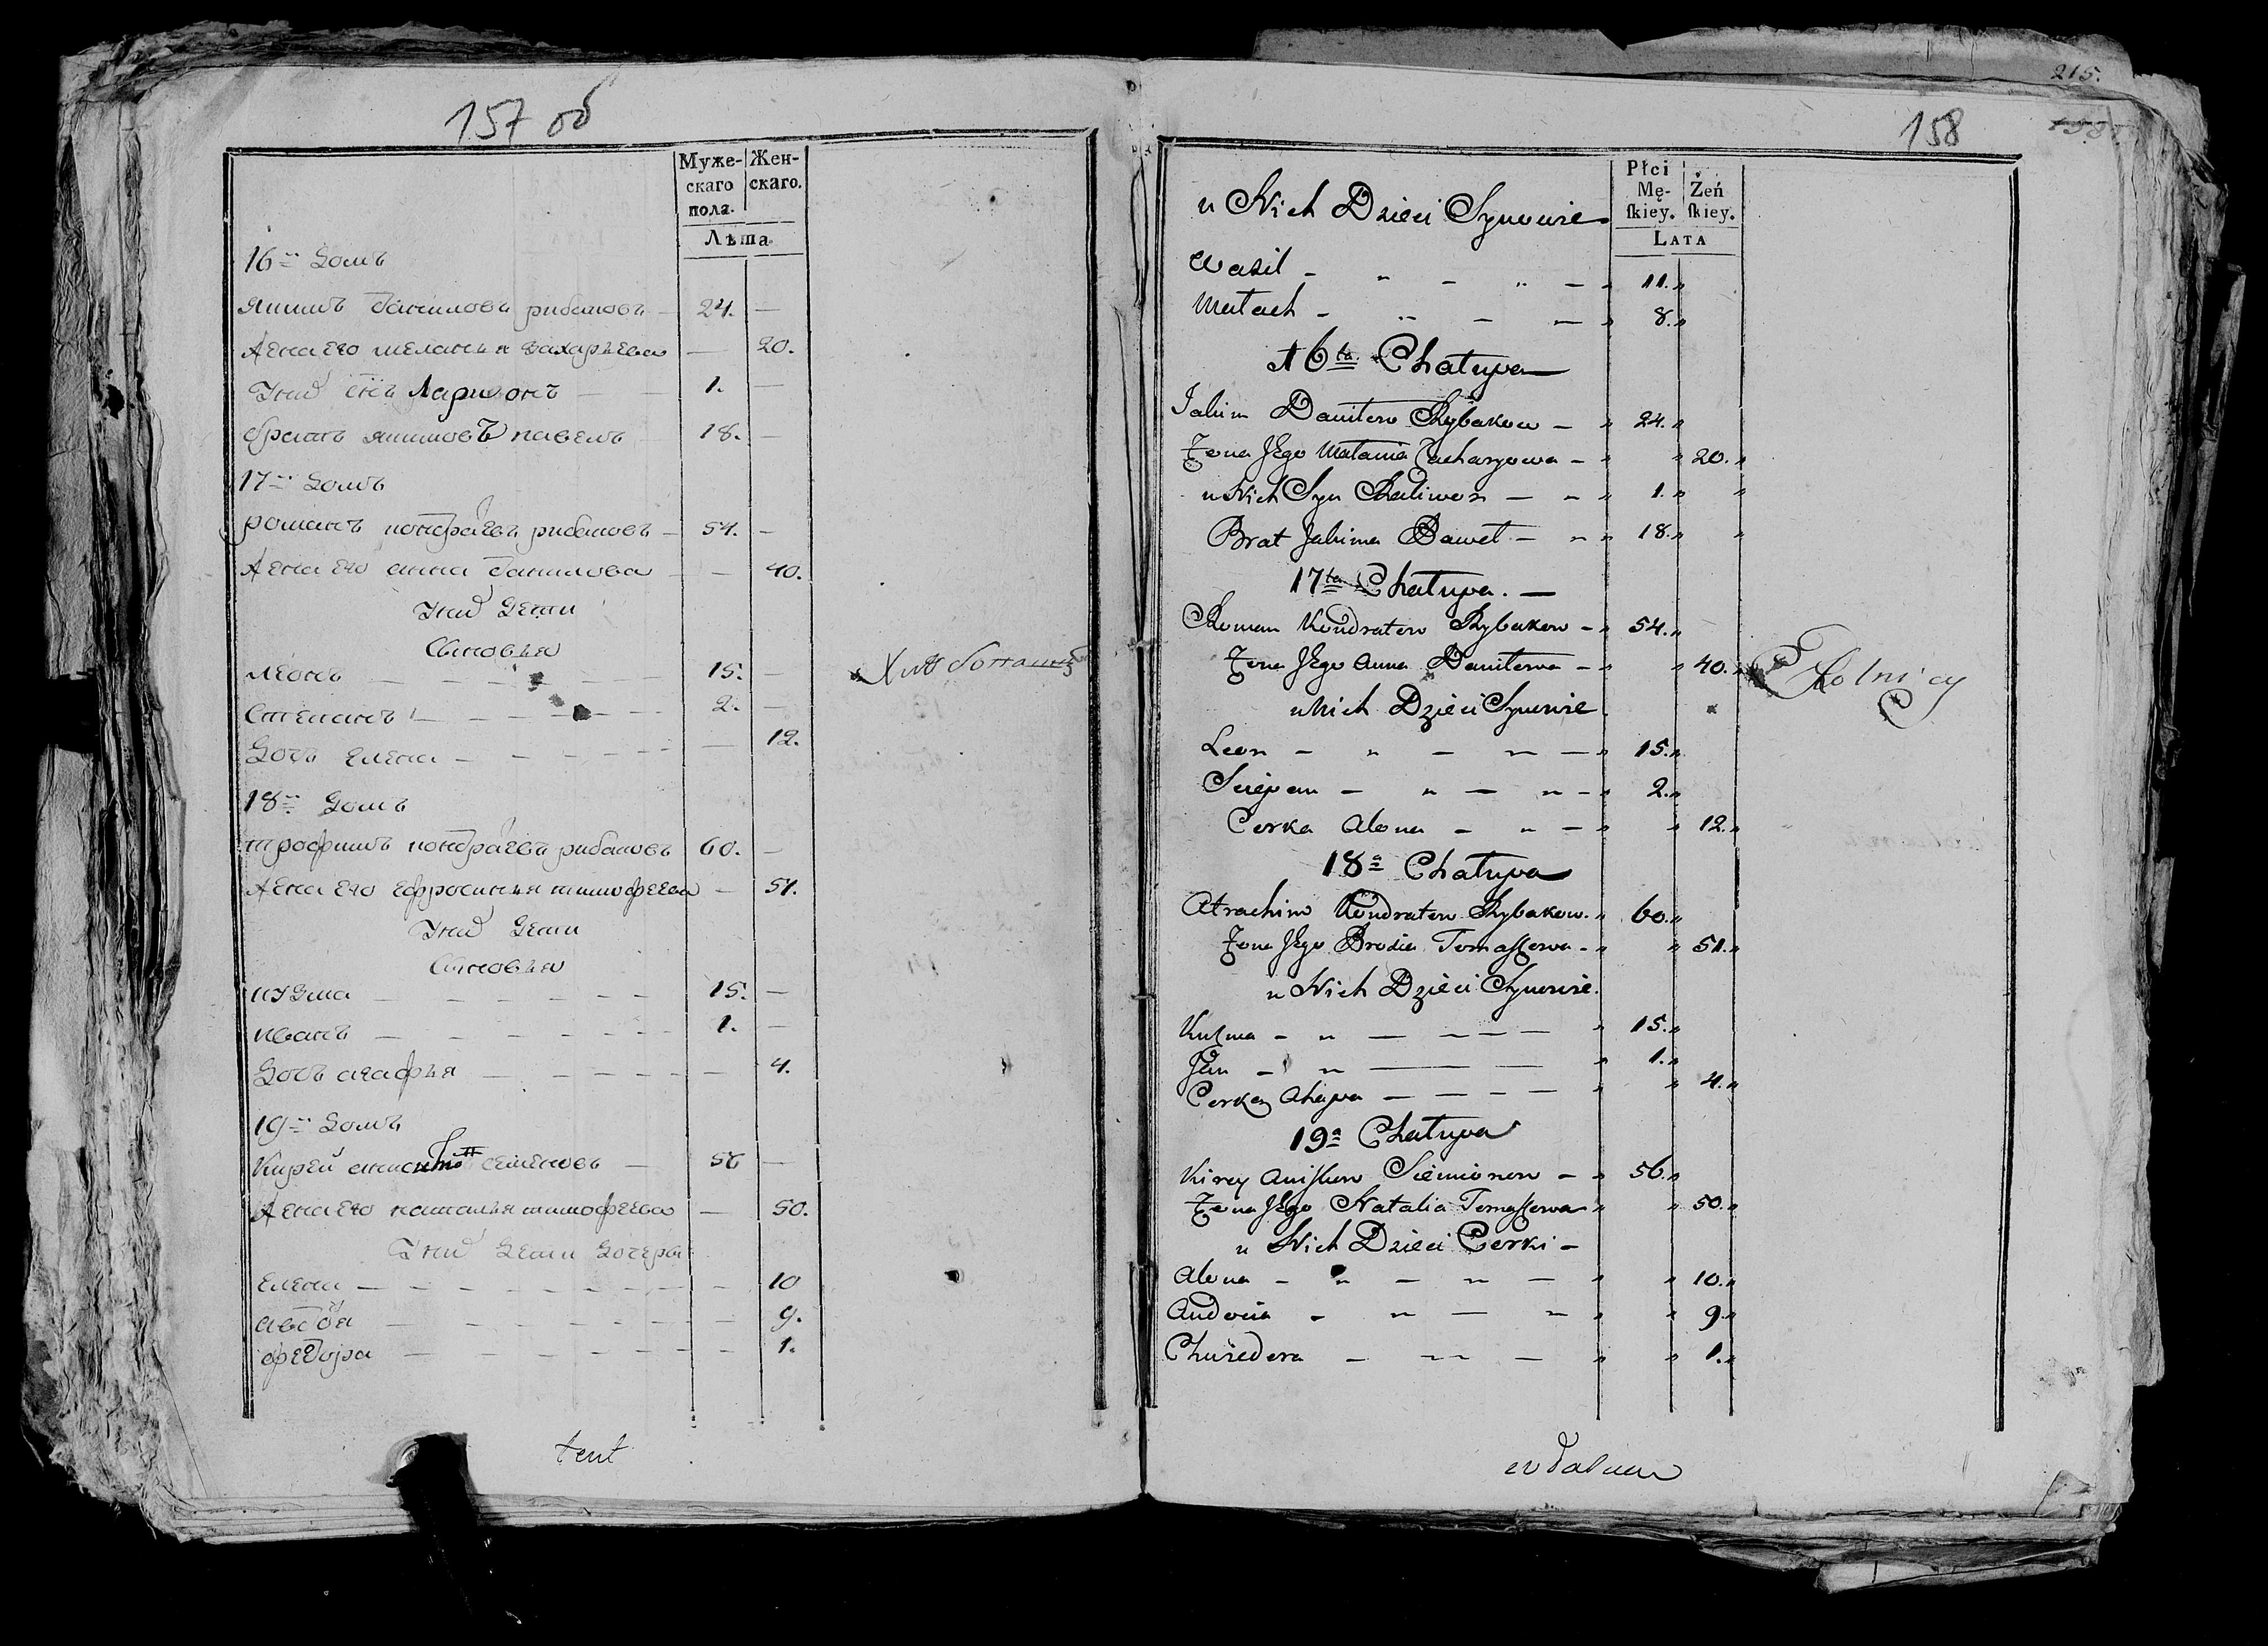 157 об
Муже-
скаго
пола.
Жен-
скаго.
Лѣта.
16й домъ
якимъ даниловъ рибаковъ — 24. —
жена его меланья захарьева — 20.
У них сн҃ъ Ларионъ — 1. —
братъ якимовъ павелъ 18. —
17й домъ
романъ кондратьевъ рибаковъ — 54. —
жена его анна данилова — 40.
У них дети
Сыновья
леонъ — 15. —
степанъ — 2. —
дочь елена — 12.
18й домъ
трофимъ кондратьевъ рибаковъ 60. —
жена его ефросинья тимофеева — 51.
У них дети
Сыновья
кузма — 15. —
иванъ — 1. —
дочь агафья — 4.
19й домъ
Кирей семеновъ — 56 —
жена его наталья тимофеева — 50.
У них дети дочери
елена — 10
авдо — 9.
федора — 1.
215.
158
Płci
Mę-
skiey.
Żeń
skiey.
LATA
u Nich Dzieci Synowie
Wasil — 11.
Małach — 8.
16ta Chałupa
Jakim Daniłow Rybakow — 24.
Żona Jego Małania Zacharyowa — 20.
u Nich Syn — 1.
Brat Jakima Paweł — 18.
17ta Chałupa. —
Roman Kondratow Rybakow — 54.
Żona Jego Anna Daniłowa — 40.
u Nich Dzieci Synowie
Rolnicy
Leon — 15.
Sciepan — 2.
Corka Alona — 12.
18a Chałupa
Atrachim Kondratow Rybakow. 60.
Żona Jego Brosia Tomaszowa — 51.
u Nich Dzieci Synowie.
Kuzma — 15.
Jan — 1.
Corka Ahapa — 4.
19a Chałupa
Kirey Siemionow — 56.
Żona Jego Natalia Tomaszowa 50.
u Nich Dzieci Corki —
Alona — 10.
Audocia — 9.
Chwiedora — 1.